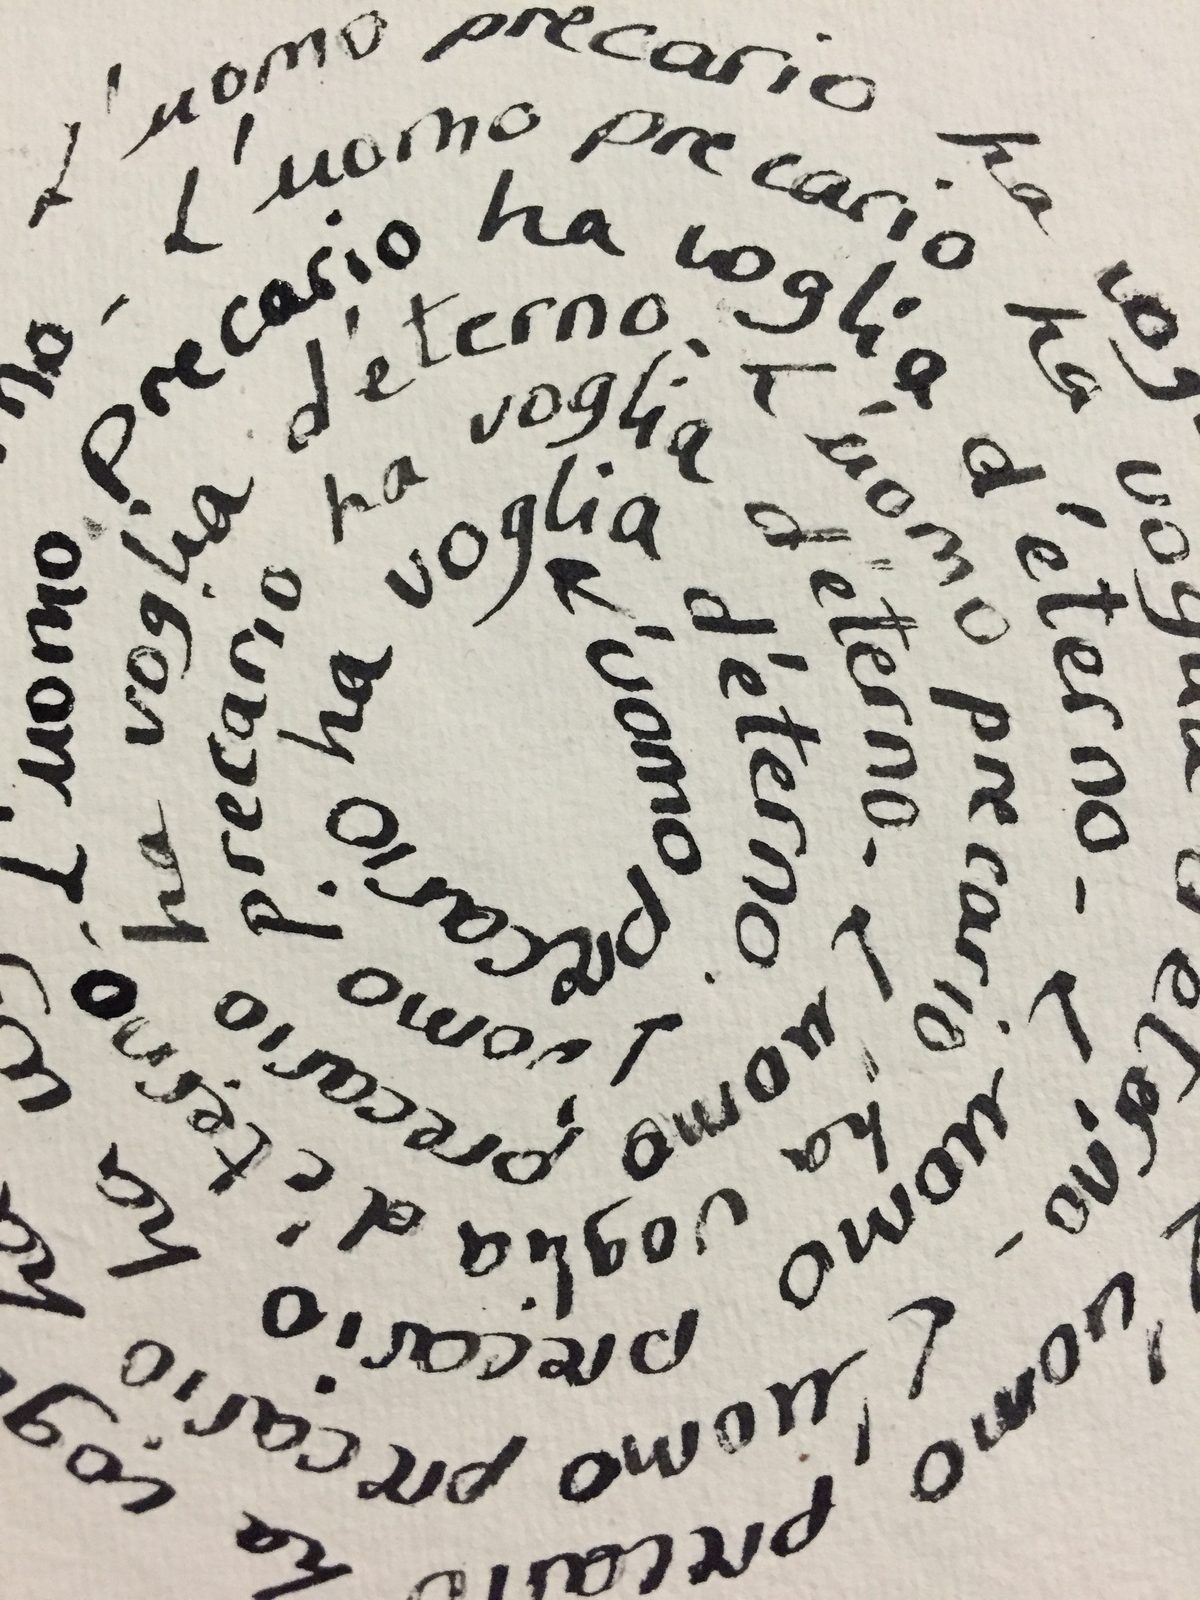 L'uomo precario ha voglia d'eterno.
L'uomo precario ha voglia d'eterno -
L'uomo precario ha voglia d'eterno.
L'uomo precario ha voglia d'eterno -
L'uomo precario ha voglia d'eterno -
L'uomo precario ha
L'uomo precario ha voglia d'eterno -
L'uomo precario ha
L'uomo precario ha vog
L'uomo precario ha vog